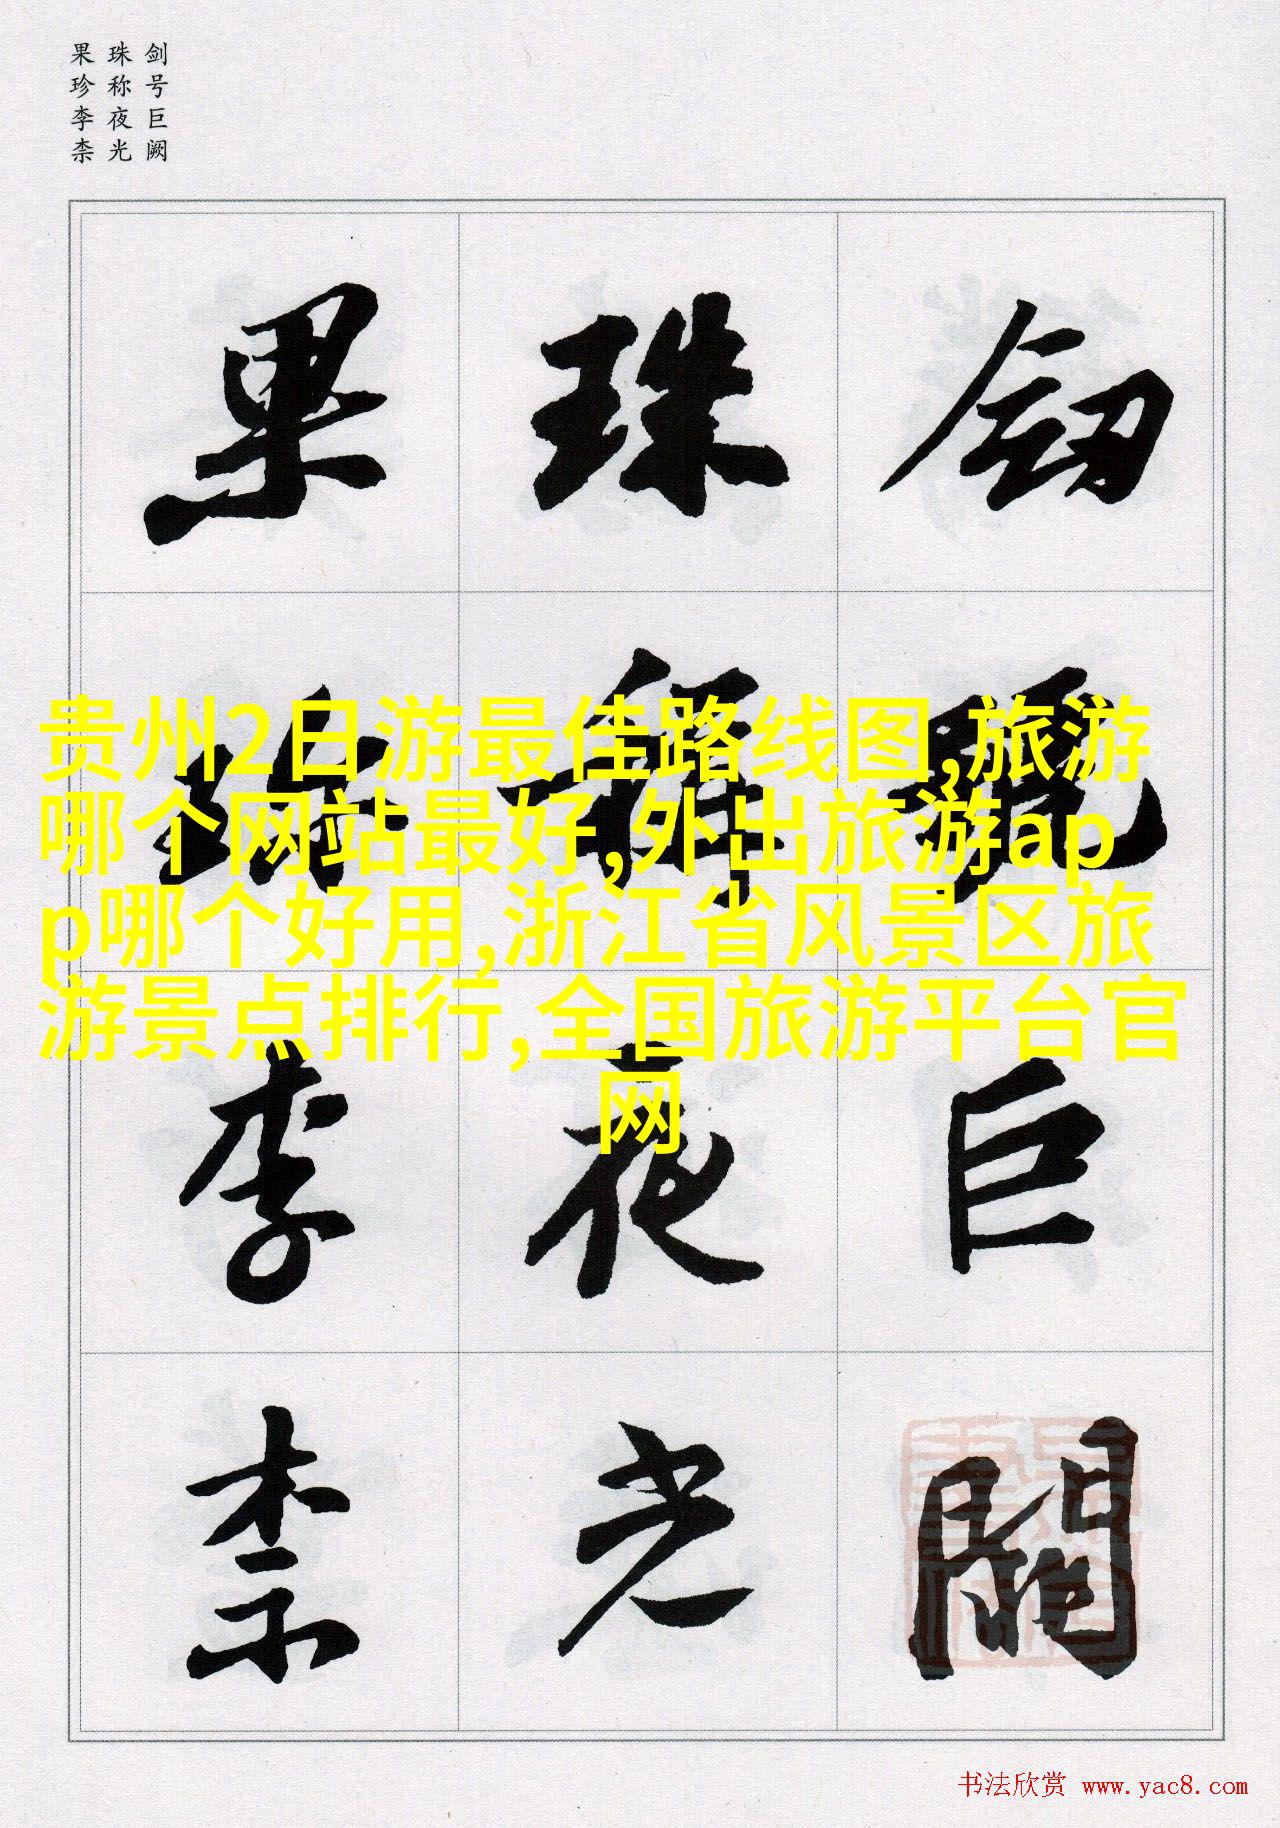 剑号巨阙
珠称夜光
果珍李柰
劒珠果
號稱珍
贵州2日游最佳路线图,旅游
哪个网站最好,外出旅游ap
p哪个好用,浙江省风景区旅
游景点排行,全国旅游平台官
网
巨夜李
闕光柰
书法欣赏 www.yac8.com